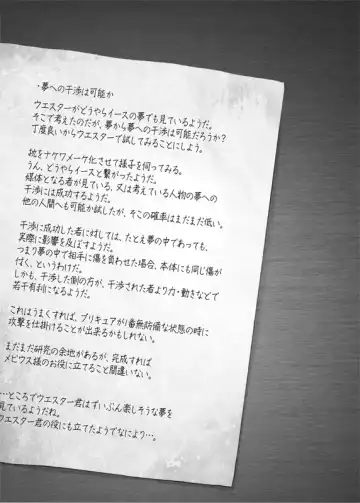 ・夢への干渉は可能か
ウエスターがどうやらイースの夢でも見ているようだ。
そこで考えたのだが、夢から夢への干渉は可能だろうか?
丁度良いからウエスターで試してみることにしよう。
枕をナケワメーケ化させて様子を伺ってみる。
うん、どうやらイースと繋がったようだ。
媒体となる者が見ている、又は考えている人物の夢への
干渉には成功するようだ。
他の人間へも可能か試したが、そこの確率はまだまだ低い。
干渉に成功した者に対しては、たとえ夢の中であっても、
実際に影響を及ぼすようだ。
つまり夢の中で相手に傷を負わせた場合、本体にも同じ傷が
付く、というわけだ。
しかも、干渉した側の方が、干渉された者より力・動きなどで
若干有利になるようだ。
これはうまくすれば、プリキュアが1番無防備な状態の時に
攻撃を仕掛けることが出来るかもしれない。
まだまだ研究の余地があるが、完成すれば
メビウス様のお役に立てること間違いない。
…ところでウエスター君はずいぶん楽しそうな夢を
見ているようだね。
ウエスター君の役にも立てたようでなにより…。